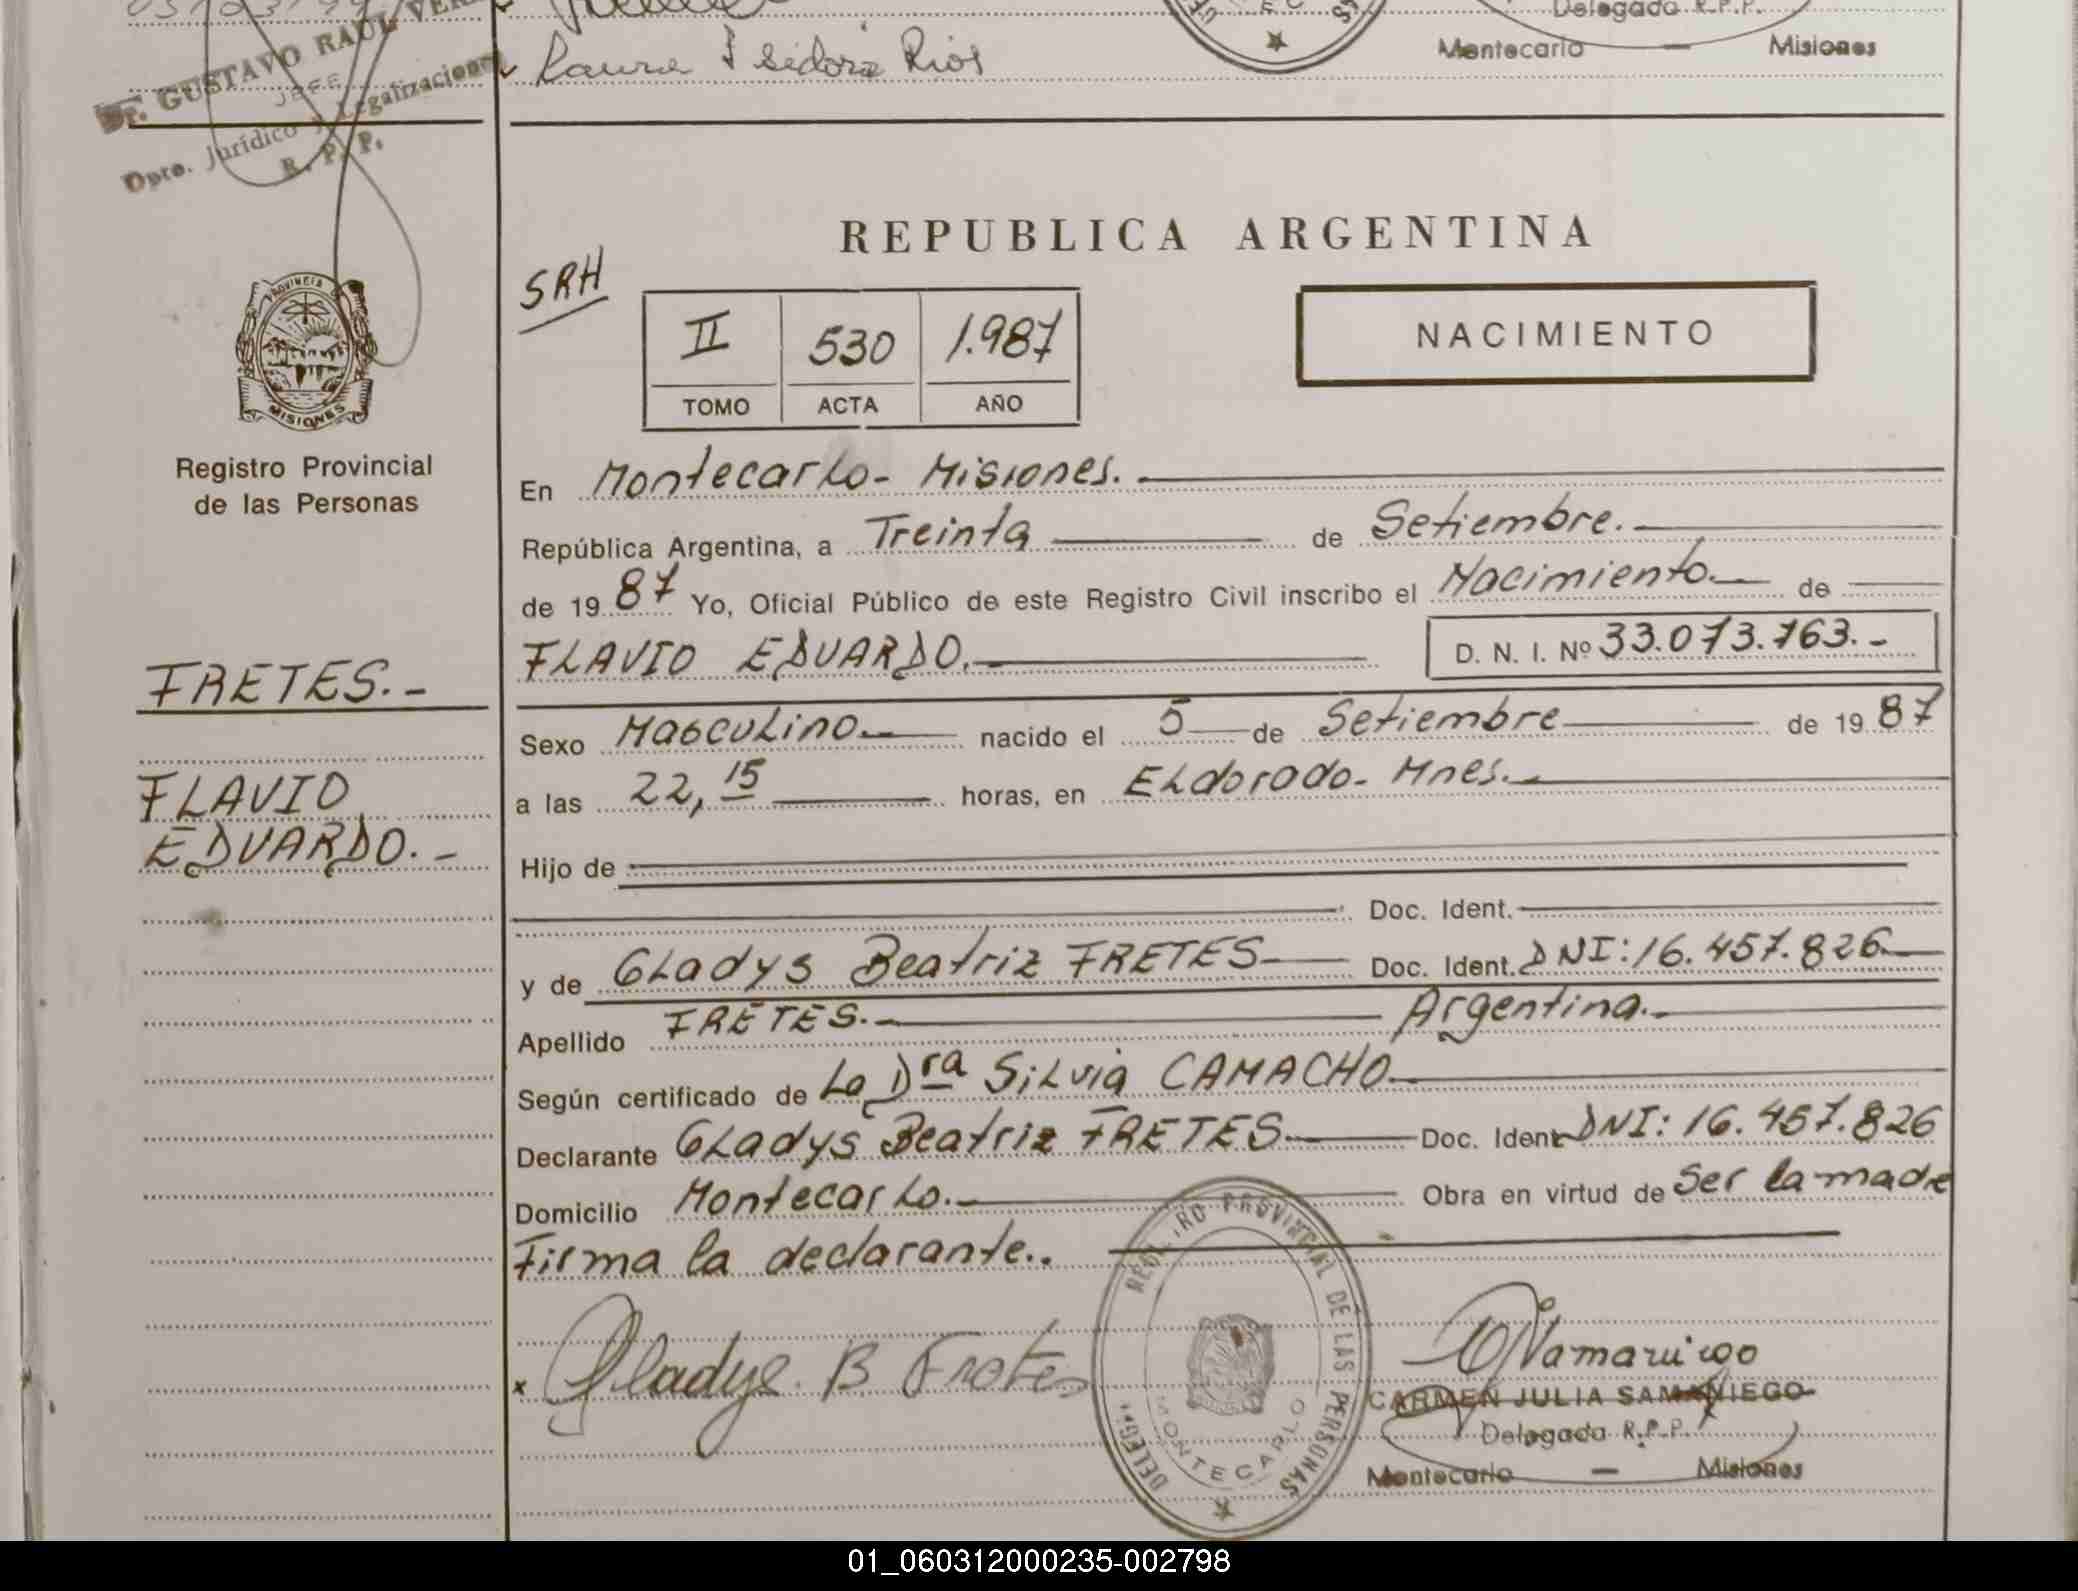 GUSTAVO RAUL
Laura Isidora Rios
Delegado R.P.P.
Montecarlo — Misiones
Dr. GUSTAVO RAUL
JEFE
Dpto. Jurídico y Legalizaciones
R. P. P.
REPUBLICA ARGENTINA
SRH
II 530 1.987
TOMO ACTA AÑO
NACIMIENTO
PROVINCIA DE
MISIONES
Registro Provincial
de las Personas
En Montecarlo- Misiones.
República Argentina, a Treinta de Setiembre.
de 1987 Yo, Oficial Público de este Registro Civil inscribo el Nacimiento de
FLAVIO EDUARDO. D. N. I. Nº 33.073.763.-
FRETES.-
FLAVIO
EDUARDO.-
Sexo Masculino nacido el 5 de Setiembre de 1987
a las 22,15 horas, en Eldorado- Mnes.
Hijo de
Doc. Ident.
y de Gladys Beatriz FRETES Doc. Ident. DNI: 16.457.826
Apellido FRETES.- Argentina.
Según certificado de La Dra Silvia CAMACHO
Declarante Gladys Beatriz FRETES Doc. Ident DNI: 16.457.826
Domicilio Montecarlo.- Obra en virtud de Ser la madre
Firma la declarante..
x Gladys. B Fretes
REGISTRO PROVINCIAL DE LAS PERSONAS
MONTECARLO
CARMEN JULIA SAMANIEGO
Delegada R.P.P.
Montecarlo — Misiones
01_060312000235-002798